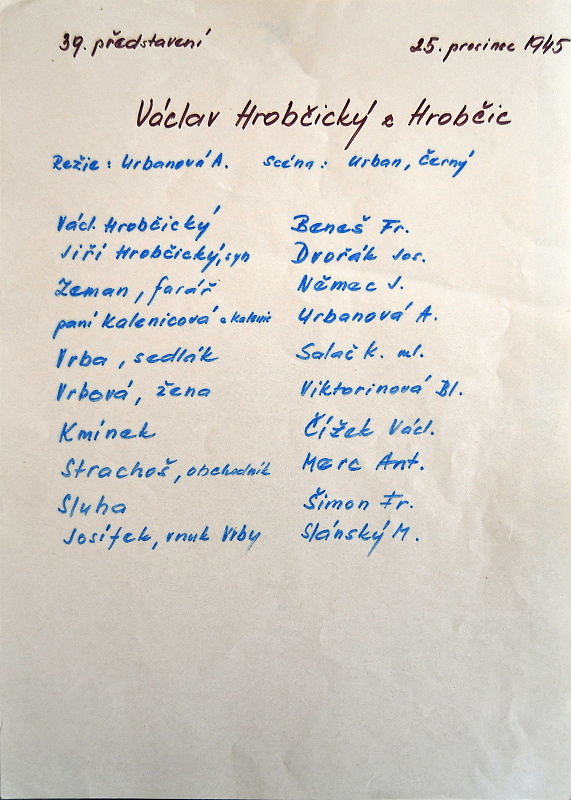 39. představení 25. prosinec 1945
Václav Hrobčický z Hrobčic
Režie: Urbanová A. Scéna: Urban, Černý
Václ. Hrobčický Beneš Fr.
Jiří Hrobčický, syn Dvořák Jos.
Zeman, farář Němec J.
paní Kalenicová z Kalenic Urbanová A.
Vrba, sedlák Salač K. ml.
Vrbová, žena Viktorinová Bl.
Kmínek Čížek Václ.
Strachoš, obchodník Merc Ant.
Sluha Šimon Fr.
Josífek, vnuk Vrby Slánský M.